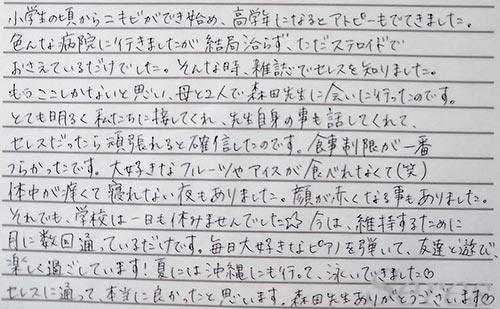 小学生の頃からニキビができ始め、高学年になるとアトピーもでてきました。
色んな病院に行きましたが結局治らず、ただステロイドで
おさえているだけでした。そんな時、雑誌でセレスを知りました。
もうここしかないと思い、母と2人で森田先生に会いに行ったのです。
とても明るく私たちに接してくれ、先生自身の事も話してくれて、
セレスだったら頑張れると確信したのです。食事制限が一番
つらかったです。大好きなフルーツやアイスが食べれなくて(笑)
体中が痒くて寝れない夜もありました。顔が赤くなる事もありました。
それでも、学校は一日も休みませんでした☆ 今は、維持するために
月に数回通っているだけです。毎日大好きなピアノを弾いて、友達と遊び、
楽しく過ごしています!夏には沖縄にも行って、泳いできました♡
セレスに通って、本当に良かったと思います。森田先生ありがとうございます♡